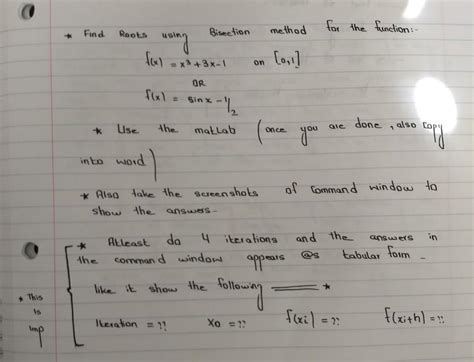 * Find Roots using Bisection method for the function:-
f(x) = x³ + 3x - 1 on [0,1]
OR
f(x) = sinx - 1/2
* Use the matlab (once you are done, also copy
into word)
* Also take the screenshots of command window to
show the answers -
* Atleast do 4 iterations and the answers in
the command window appears @s tabular form -
like it show the following *
* This
is
imp
Iteration = ?? X0 = ?? f(xi) = ?? f(xi+h) = ??